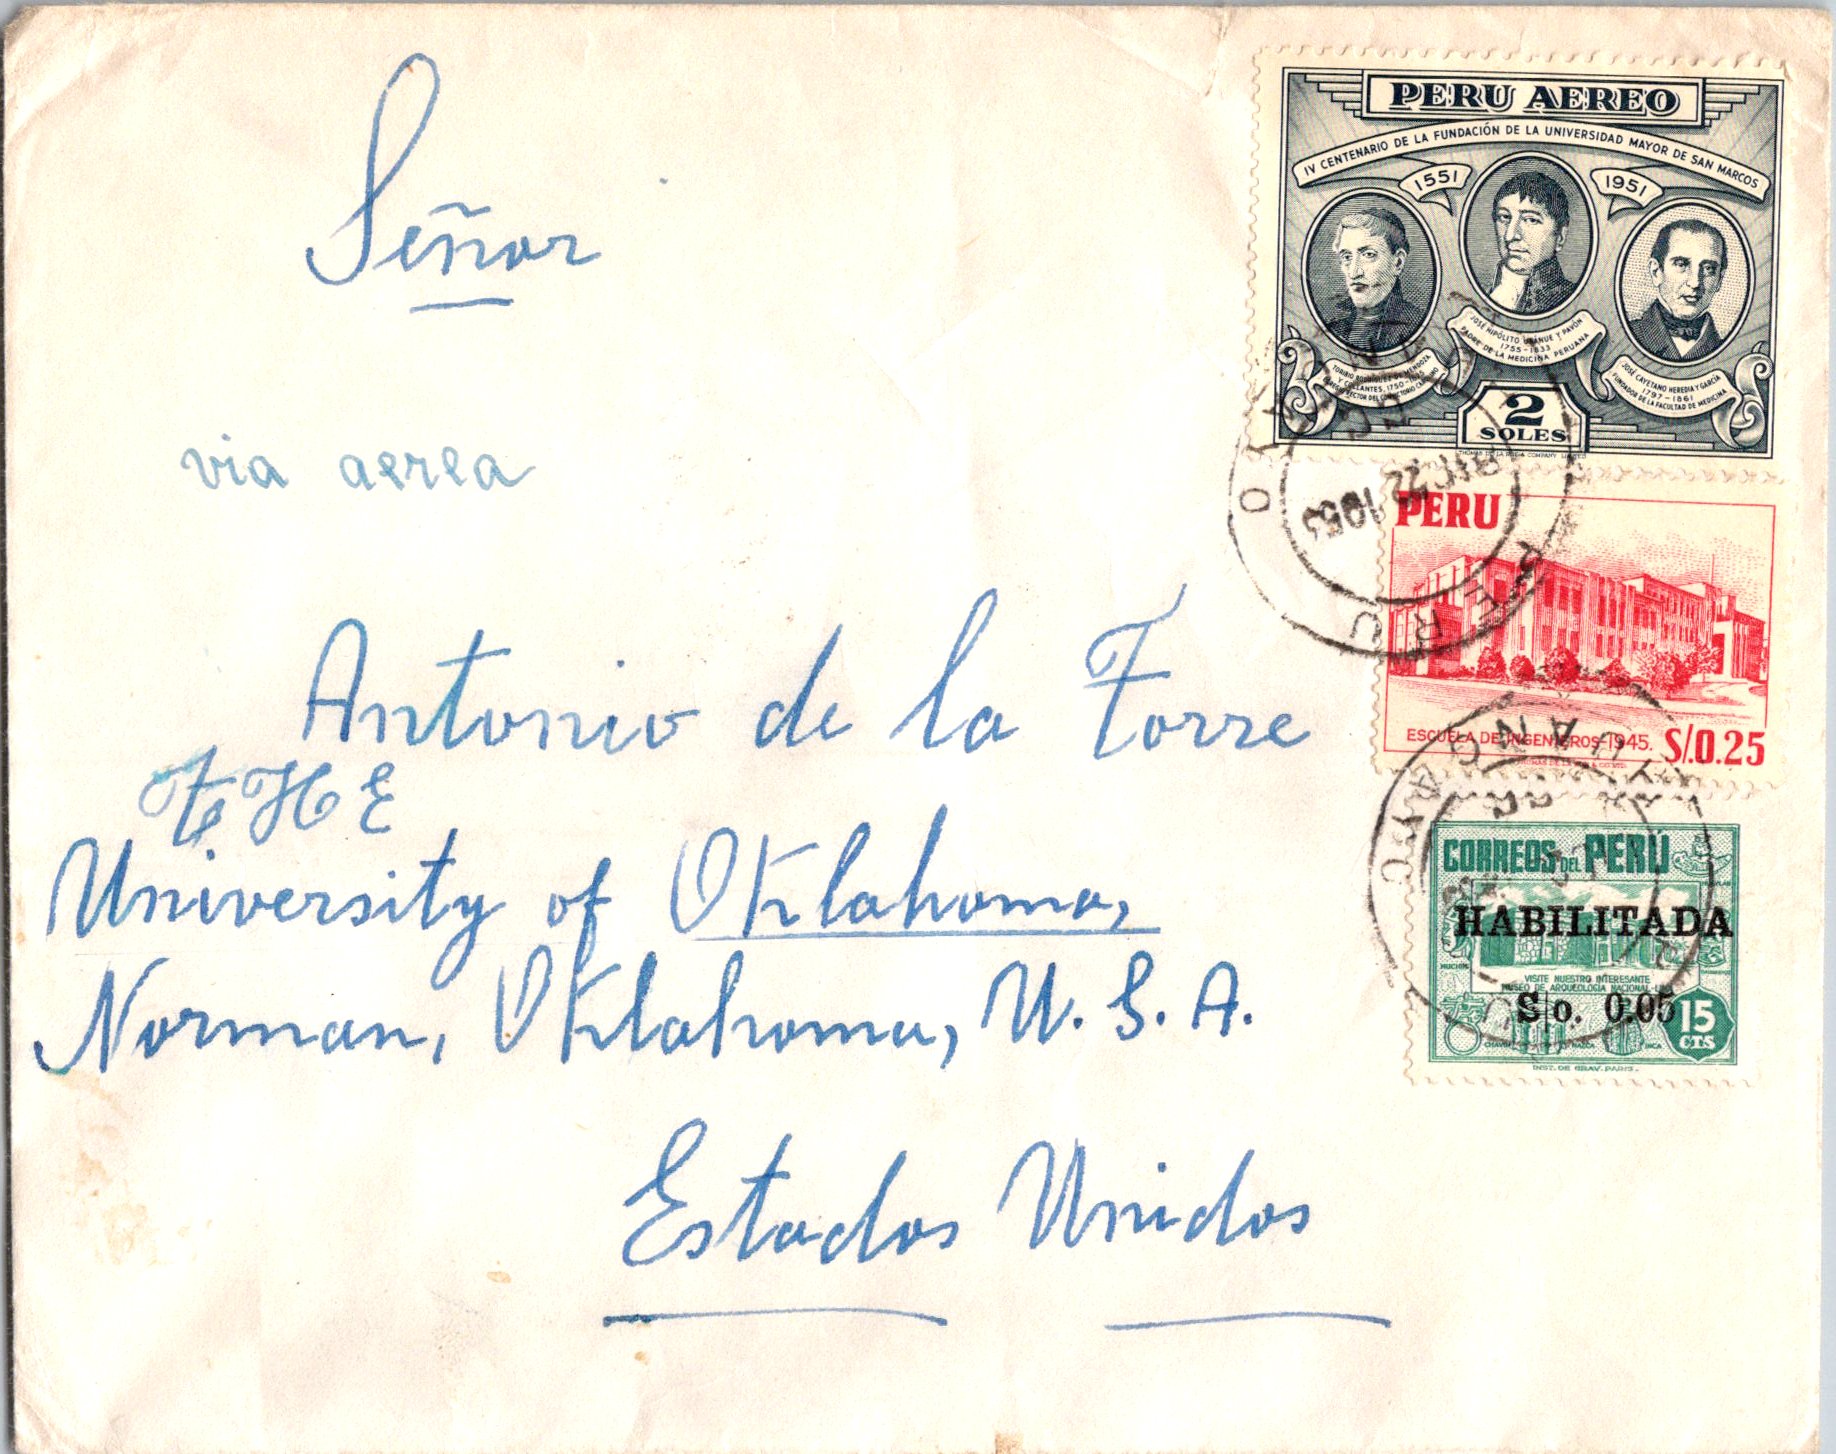 Señor
via aerea
Antonio de la Torre
THE
University of Oklahoma,
Norman, Oklahoma, U. S. A.
Estados Unidos
PERU AEREO
IV CENTENARIO DE LA FUNDACIÓN DE LA UNIVERSIDAD MAYOR DE SAN MARCOS
1551
1951
JOSÉ HIPÓLITO UNANUE Y PAVÓN
1755-1833
PADRE DE LA MEDICINA PERUANA
TORIBIO RODRÍGUEZ DE MENDOZA
Y COLLANTES, 1750-
RECTOR DEL
JOSÉ CAYETANO HEREDIA Y GARCÍA
1797-1861
FUNDADOR DE LA FACULTAD DE MEDICINA
2
SOLES
THOMAS DE LA RUE & COMPANY LIMITED
22 1953
PERU
PERU
ESCUELA DE INGENIEROS-1945.
S/.0.25
CORREOS DEL PERÚ
HABILITADA
VISITE NUESTRO INTERESANTE
MUSEO DE ARQUEOLOGIA NACIONAL-LIMA
S/o. 0.05
15
CTS
NAZCA
INCA
INST. DE GRAV. PARIS.